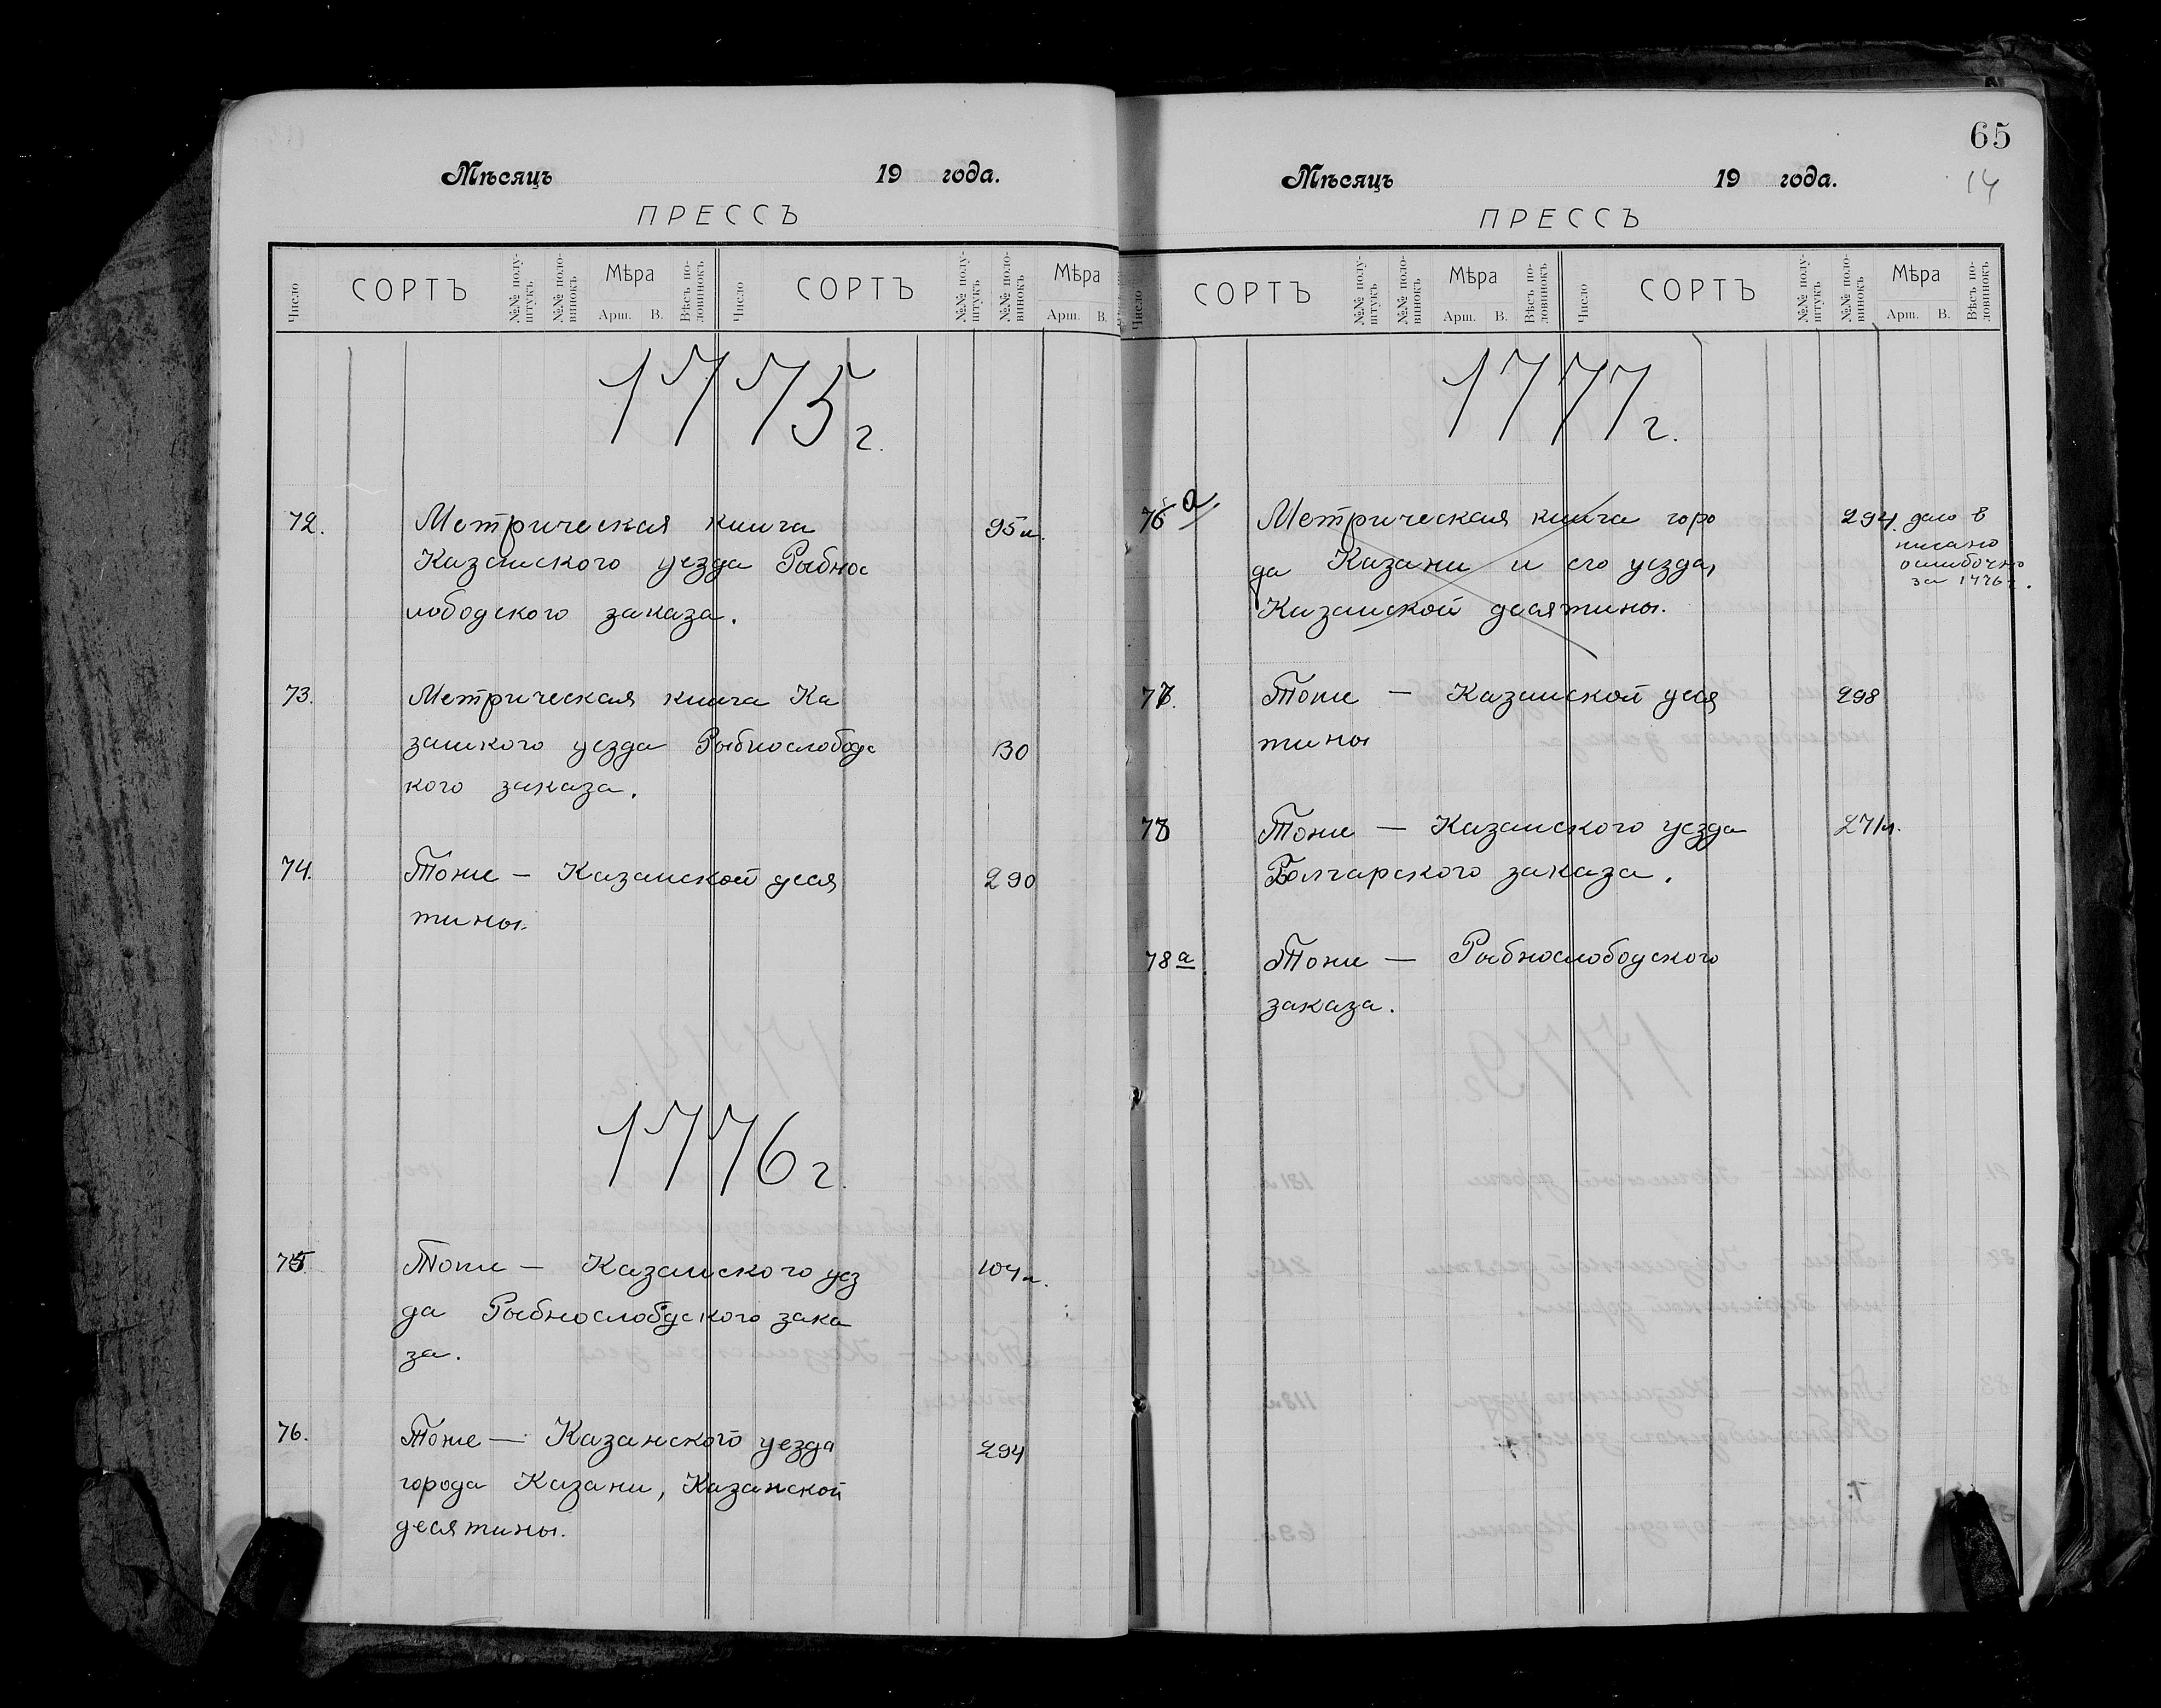 Мѣсяцъ 19 года.
ПРЕССЪ
Число СОРТЪ №№ полу-штукъ №№ поло-винокъ Мѣра Арш. В. Вѣсъ по-ловинокъ Число СОРТЪ №№ полу-штукъ №№ поло-винокъ Мѣра Арш. В.
1775 г.
72. Метрическая книга 95 л.
Казанского уезда Рыбнос
лободского заказа.
73. Метрическая книга Ка
занского уезда Рыбнослободс 130
кого заказа.
74. Тоже — Казанской деся 290
тины.
1776 г.
75 Тоже — Казанского уез 104 л.
да Рыбнослобдского зака
за.
76. Тоже — Казанского уезда 294
города Казани, Казанской
десятины.
65
14
Мѣсяцъ 19 года.
ПРЕССЪ
Число СОРТЪ №№ полу-штукъ №№ поло-винокъ Мѣра Арш. В. Вѣсъ по-ловинокъ Число СОРТЪ №№ полу-штукъ №№ поло-винокъ Мѣра Арш. В. Вѣсъ по-ловинокъ
1777 г.
76 а. Метрическая книга горо 294.
да Казани и его уезда,
Казанской десятины.
писано
ошибочно
за 1776 г.
77. Тоже — Казанской деся 298
тины
78 Тоже — Казанского уезда 271 л.
Болгарского заказа.
78 а Тоже — Рыбнослободского
заказа.